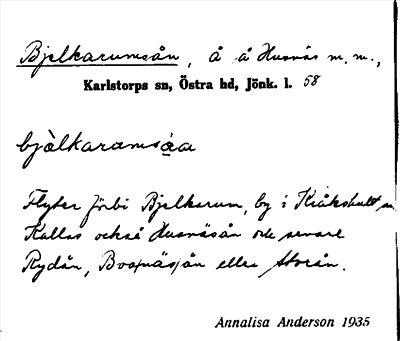 Bjelkarumsån, å å Husnäs m.m.,
Karlstorps sn, Östra hd, Jönk. l. 58
bjälkaramsǻa
Flyter förbi Bjelkarum, by i Kråkshult sn
Kallas också Husnäsån och senare
Rydån, Bo(näs)ån eller Storån.
Annalisa Anderson 1935